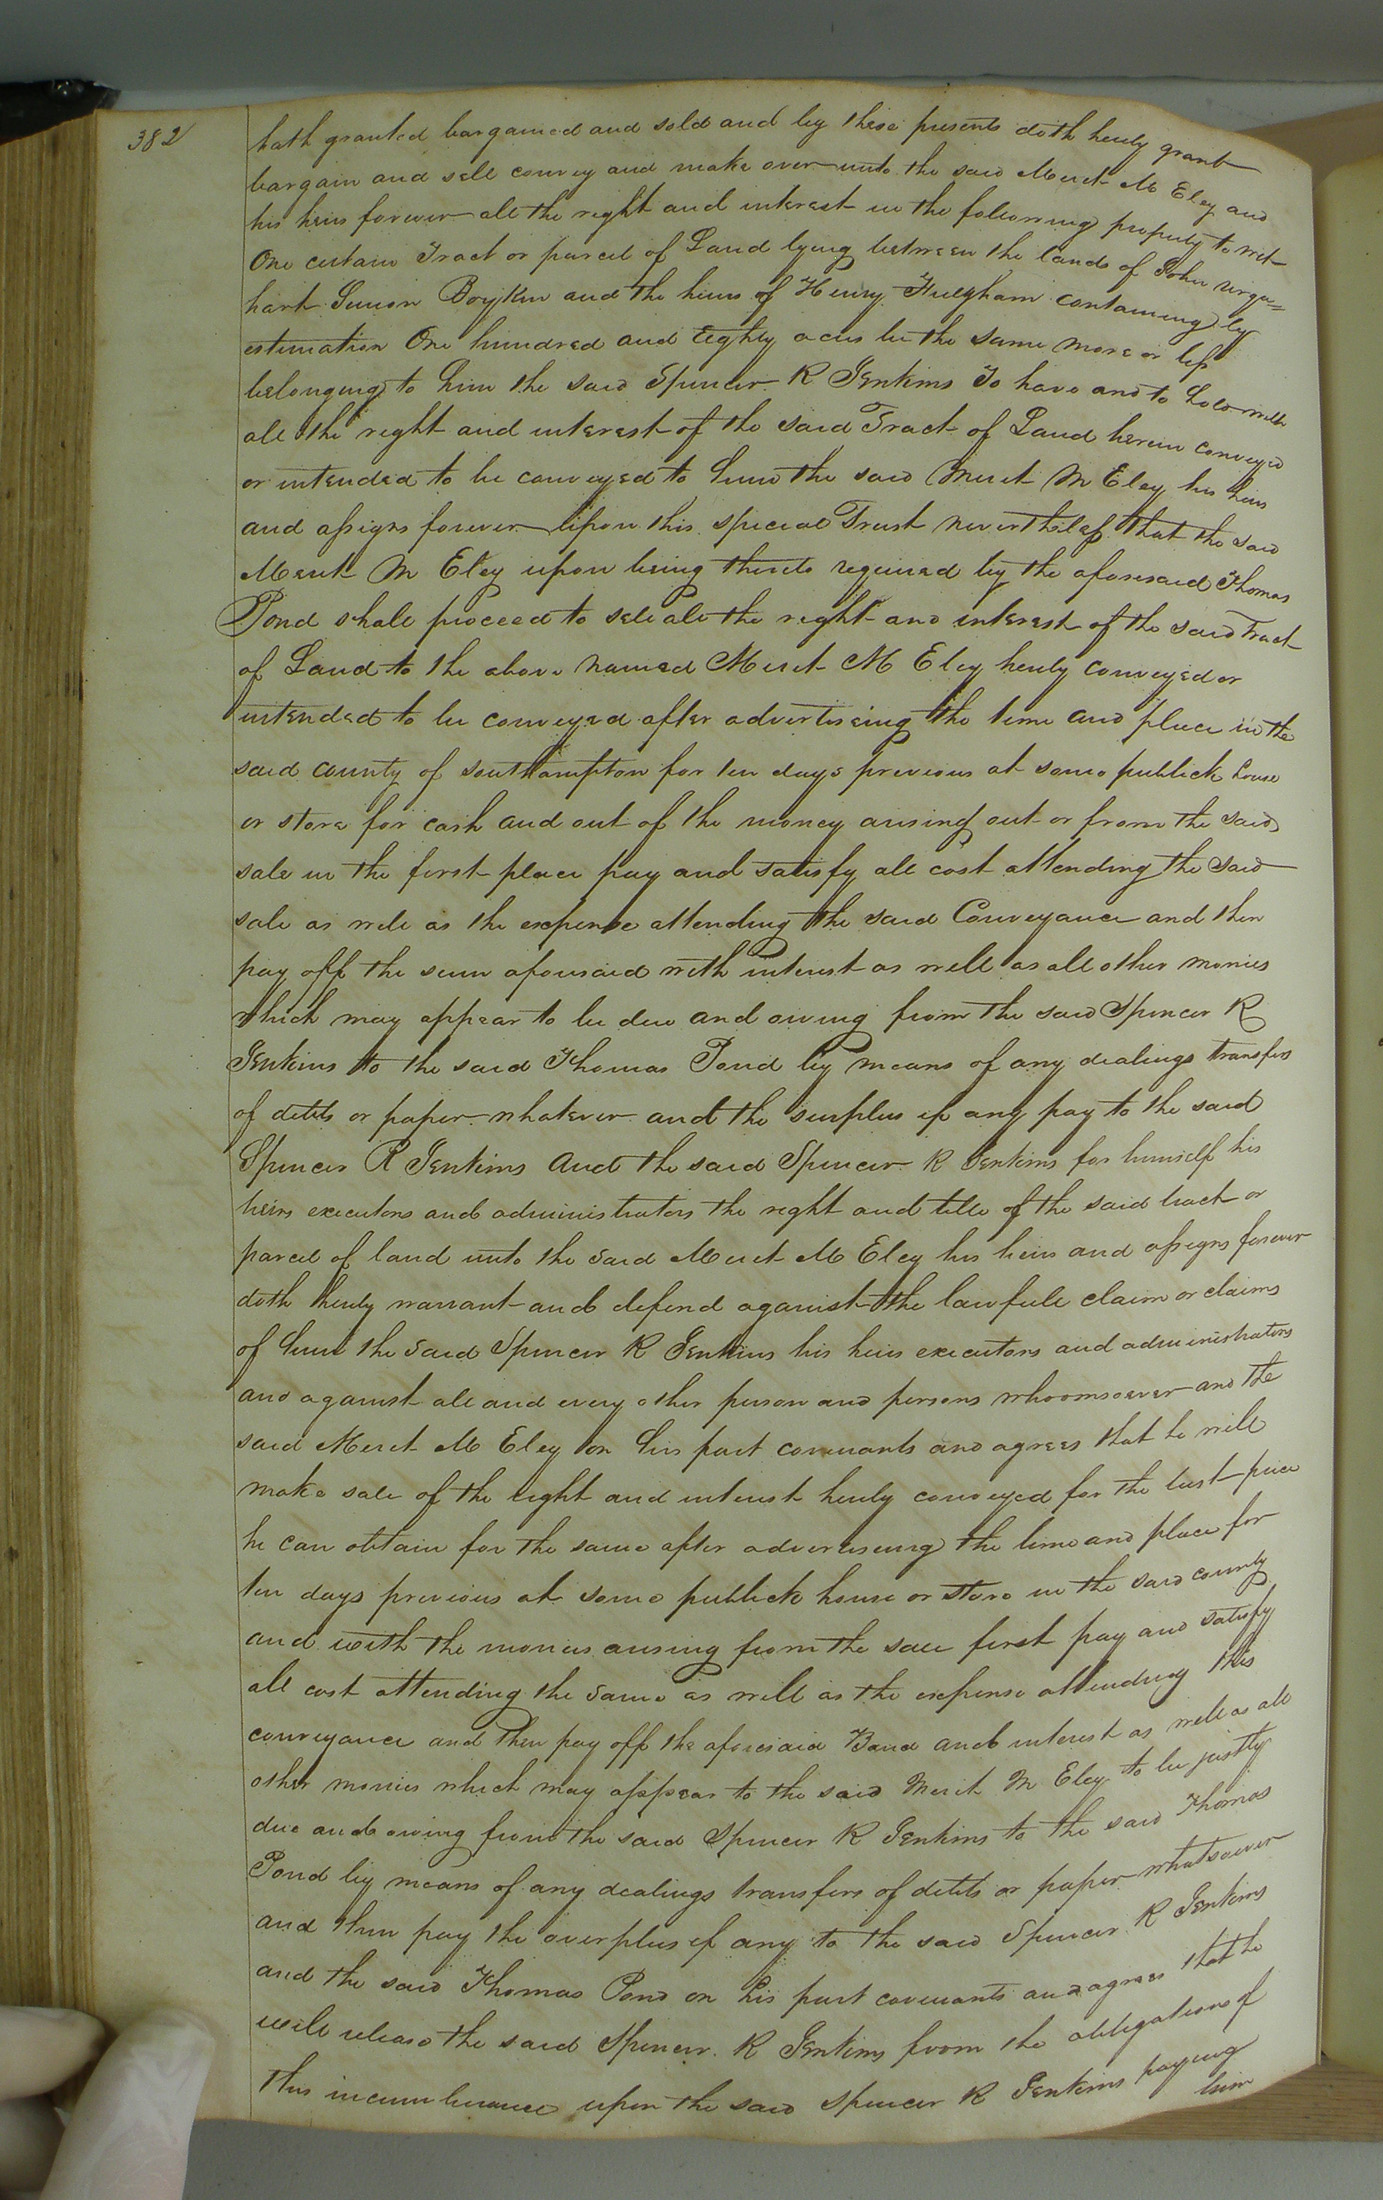 382
hath granted bargained and sold and by these presents doth hereby grant
bargain and sell convey and make over unto the said Merit M Eley and
his heirs forever all the right and interest in the following property to wit
One certain Tract or parcel of Land lying between the lands of John Urqu=
hart Simon Boykin and the heirs of Henry Fulgham containing by
estimation One hundred and Eighty acres be the same more or less
belonging to him the said Spencer R Jenkins To have and to hold with
all the right and interest of the said Tract of Land herein conveyed
or intended to be conveyed to him the said Merit M Eley his heirs
and assigns forever upon this special Trust nevertheless that the said
Merit M Eley upon being thereto required by the aforesaid Thomas
Pond shall proceed to sell all the right and interest of the said Tract
of Land to the above named Merit M Eley hereby conveyed or
intended to be conveyed after advertiseing the time and place in the
said county of Southampton for ten days previous at some publick house
or store for cash and out of the money arising out or from the said
sale in the first place pay and satisfy all cost attending the said
sale as well as the expense attending the said Conveyance and then
pay off the sum aforesaid with interest as well as all other monies
which may appear to be due and owing from the said Spencer R
Jenkins to the said Thomas Pond by means of any dealings transfers
of debts or paper whatever and the surplus if any pay to the said
Spencer R Jenkins And the said Spencer R Jenkins for himself his
heirs executors and administrators the right and title of the said tract or
parcel of land unto the said Merit M Eley his heirs and assigns forever
doth hereby warrant and defend against the lawfull claim or claims
of him the said Spencer R Jenkins his heirs executors and administrators
and against all and every other person and persons whoomsoever and the
said Merit M Eley on his part covenants and agrees that he will
make sale of the right and interest hereby conveyed for the best price
he can obtain for the same after adverseing the time and place for
ten days previous at some publick house or store in the said county
and with the monies arising from the sale first pay and satisfy
all cost attending the same as well as the expense attending this
conveyance and then pay off the aforesaid Bond and interest as well as all
other monies which may appear to the said Merit M Eley to be justly
due and owing from the said Spencer R Jenkins to the said Thomas
Pond by means of any dealings transfers of debts or paper whatsoever
and then pay the overplus if any to the said Spencer R Jenkins
and the said Thomas Pond on his part covenants and agrees that he
will release the said Spencer R Jenkins from the obligation of
this incumberance upon the said Spencer R Jenkins paying
him